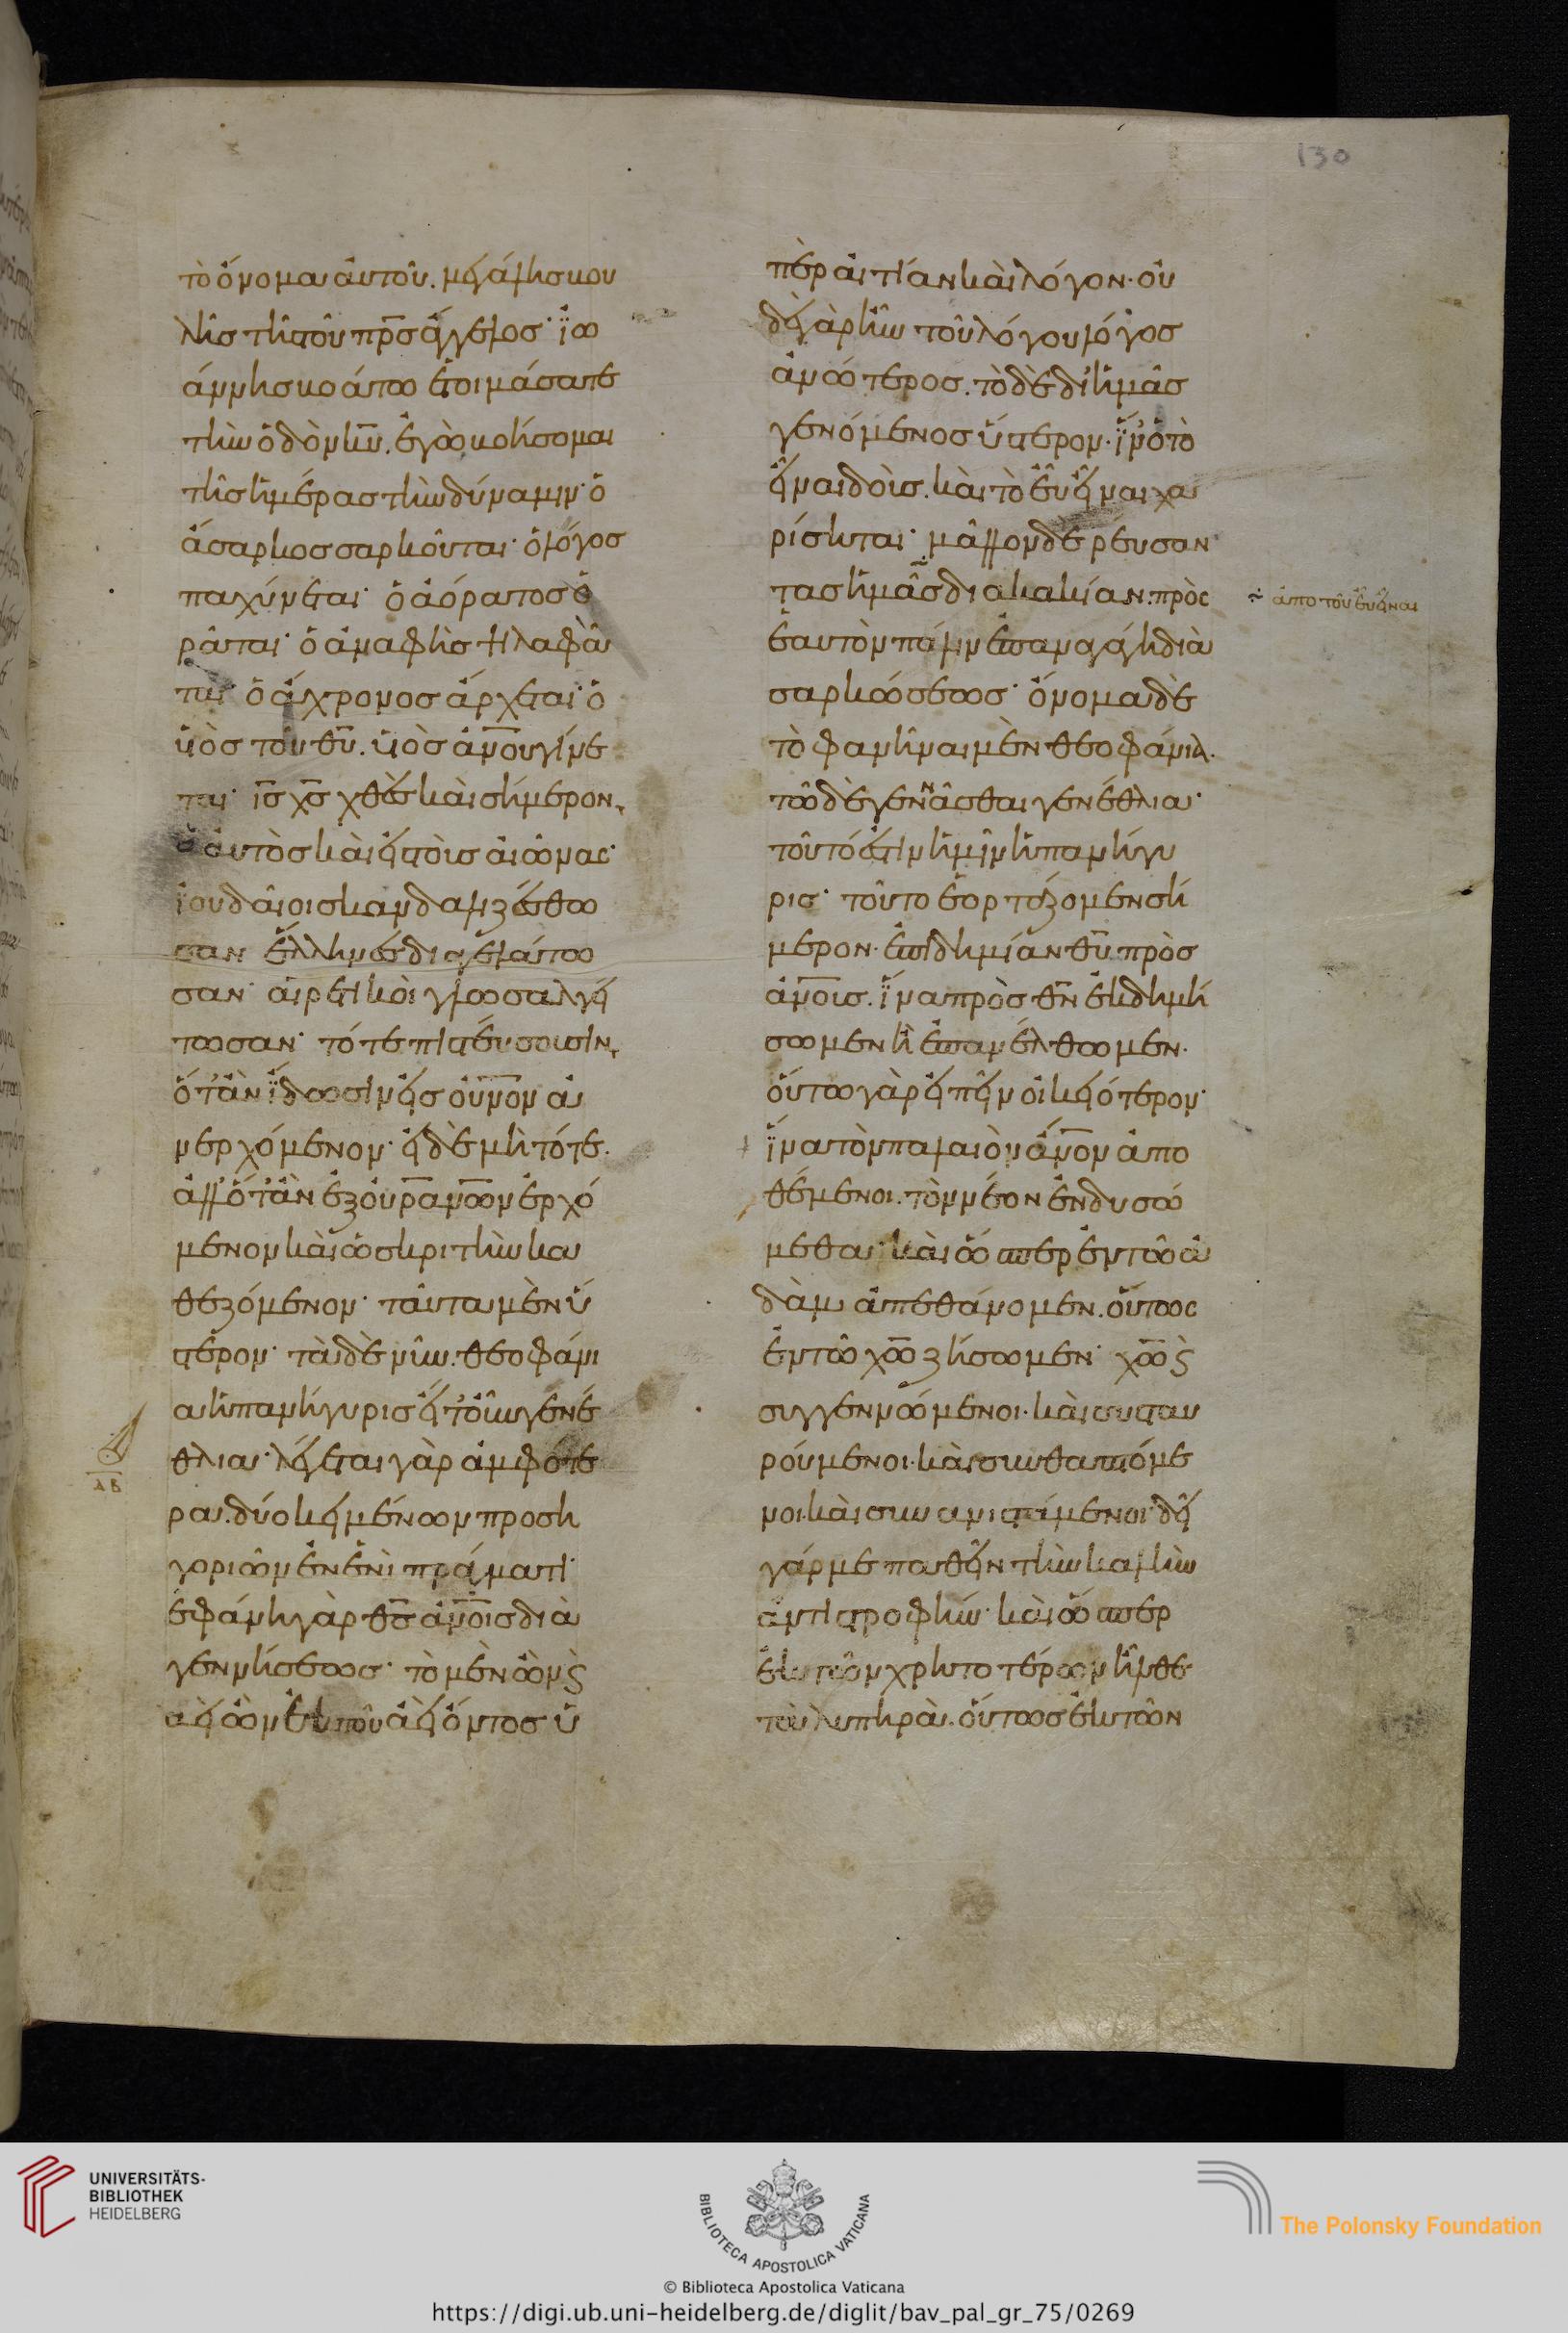 130
τὸ ὄνομα αὐτοῦ. μεγάλης βου
λῆς τῆς τοῦ πρ̅ς ἄγγελος· ἰω
άννης βοάτω ἑτοιμάσατε
τὴν ὁδὸν κ̅υ. ἐγὼ βοήσομαι
τῆς ἡμέρας τὴν δύναμιν· ὁ
ἄσαρκος σαρκοῦται· ὁ λόγος
παχύνεται· ὁ ἀόρατος ὁ
ρᾶται· ὁ ἀναφὴς ψηλαφᾶ
ται· ὁ ἄχρονος ἄρχεται· ὁ
υἱὸς τοῦ θ̅υ. υἱὸς ἀν̅ου γίνε
ται· ι̅ς χ̅ς χθὲς καὶ σήμερον,
ὁ αὐτὸς καὶ εἰς τοὺς αἰῶνας·
ἰουδαῖοι σκανδαλιζέσθω
σαν ἕλληνες διαγελάτω
σαν· αἱρετικοὶ γλωσσαλγεί
τωσαν· τότε πιστεύσουσιν,
ὅταν ἴδωσιν εἰς ου̅νον ἀ
νερχόμενον· εἰ δὲ μὴ τότε.
ἀλλ' ὅταν ἐξ ου̅ρανω̅ν ἐρχό
μενον καὶ ὡς κριτὴν κα
θεζόμενον· ταῦτα μὲν ὕ
στερον· τὰ δὲ νῦν. θεοφάνι
α ἡ πανήγυρις εἴτουν γενέ
θλια· λέγεται γὰρ ἀμφότε
ρα. δύο κειμένων προση
γοριῶν ἑνὶ πράγματι·
ἐφάνη γὰρ θ̅ς ἀν̅οις διὰ
γεννήσεως· τὸ μὲν ὢν ϗ
ἀεὶ ὢν ἐκ τοῦ ἀεὶ ὄντος ὑ
πὲρ αἰτίαν καὶ λόγον· οὐ
δὲ γὰρ ἦν τοῦ λόγου λόγος
ἀνώτερος. τὸ δὲ δι' ἡμᾶς
γενόμενος ὕστερον. ἵν' ὁ τὸ
εἶναι δοὺς. καὶ τὸ εὖ εἶναι χα
ρίσηται· μᾶλλον δὲ ῥεύσαν
τας ἡμᾶς διὰ κακίαν. πρὸς
ἑαυτὸν πάλιν ἐπαναγάγη διὰ
σαρκώσεως· ὄνομα δὲ
τὸ φανῆναι μὲν θεοφάνια.
τῶ δὲ γεννᾶσθαι γενέθλια·
τοῦτό ἐστιν ἡμῖν ἡ πανήγυ
ρις· τοῦτο ἑορτάζομεν σή
μερον. ἐπιδημίαν θ̅υ πρὸς
ἀν̅οις. ἵνα πρὸς θ̅ν ἐκδημή
σωμεν ἢ ἐπανέλθωμεν.
οὕτω γὰρ εἰπεῖν οἰκειότερον·
ἵνα τὸν παλαιὸν ἄν̅ον ἀπο
θέμενοι. τὸν νέον ἐνδυσώ
μεθα· καὶ ὥσπερ ἐν τῶ ἀ
δὰμ ἀπεθάνομεν. οὕτως
ἐν τῶ χ̅ω ζήσωμεν· χ̅ω ϗ
συγγεννώμενοι. καὶ συσταυ
ρούμενοι. καὶ συνθαπτόμε
νοι. καὶ συνανιστάμενοι· δεῖ
γάρ με παθεῖν τὴν καλὴν
ἀντιστροφήν· καὶ ὥσπερ
ἐκ τῶν χρηστοτέρων ἦλθε
τὰ λυπηρὰ. οὕτως ἐκ τῶν
ἀπὸ τοῦ εὖ εἶναι
UNIVERSITÄTS-
BIBLIOTHEK
HEIDELBERG
BIBLIOTECA APOSTOLICA VATICANA
© Biblioteca Apostolica Vaticana
The Polonsky Foundation
https://digi.ub.uni-heidelberg.de/diglit/bav_pal_gr_75/0269